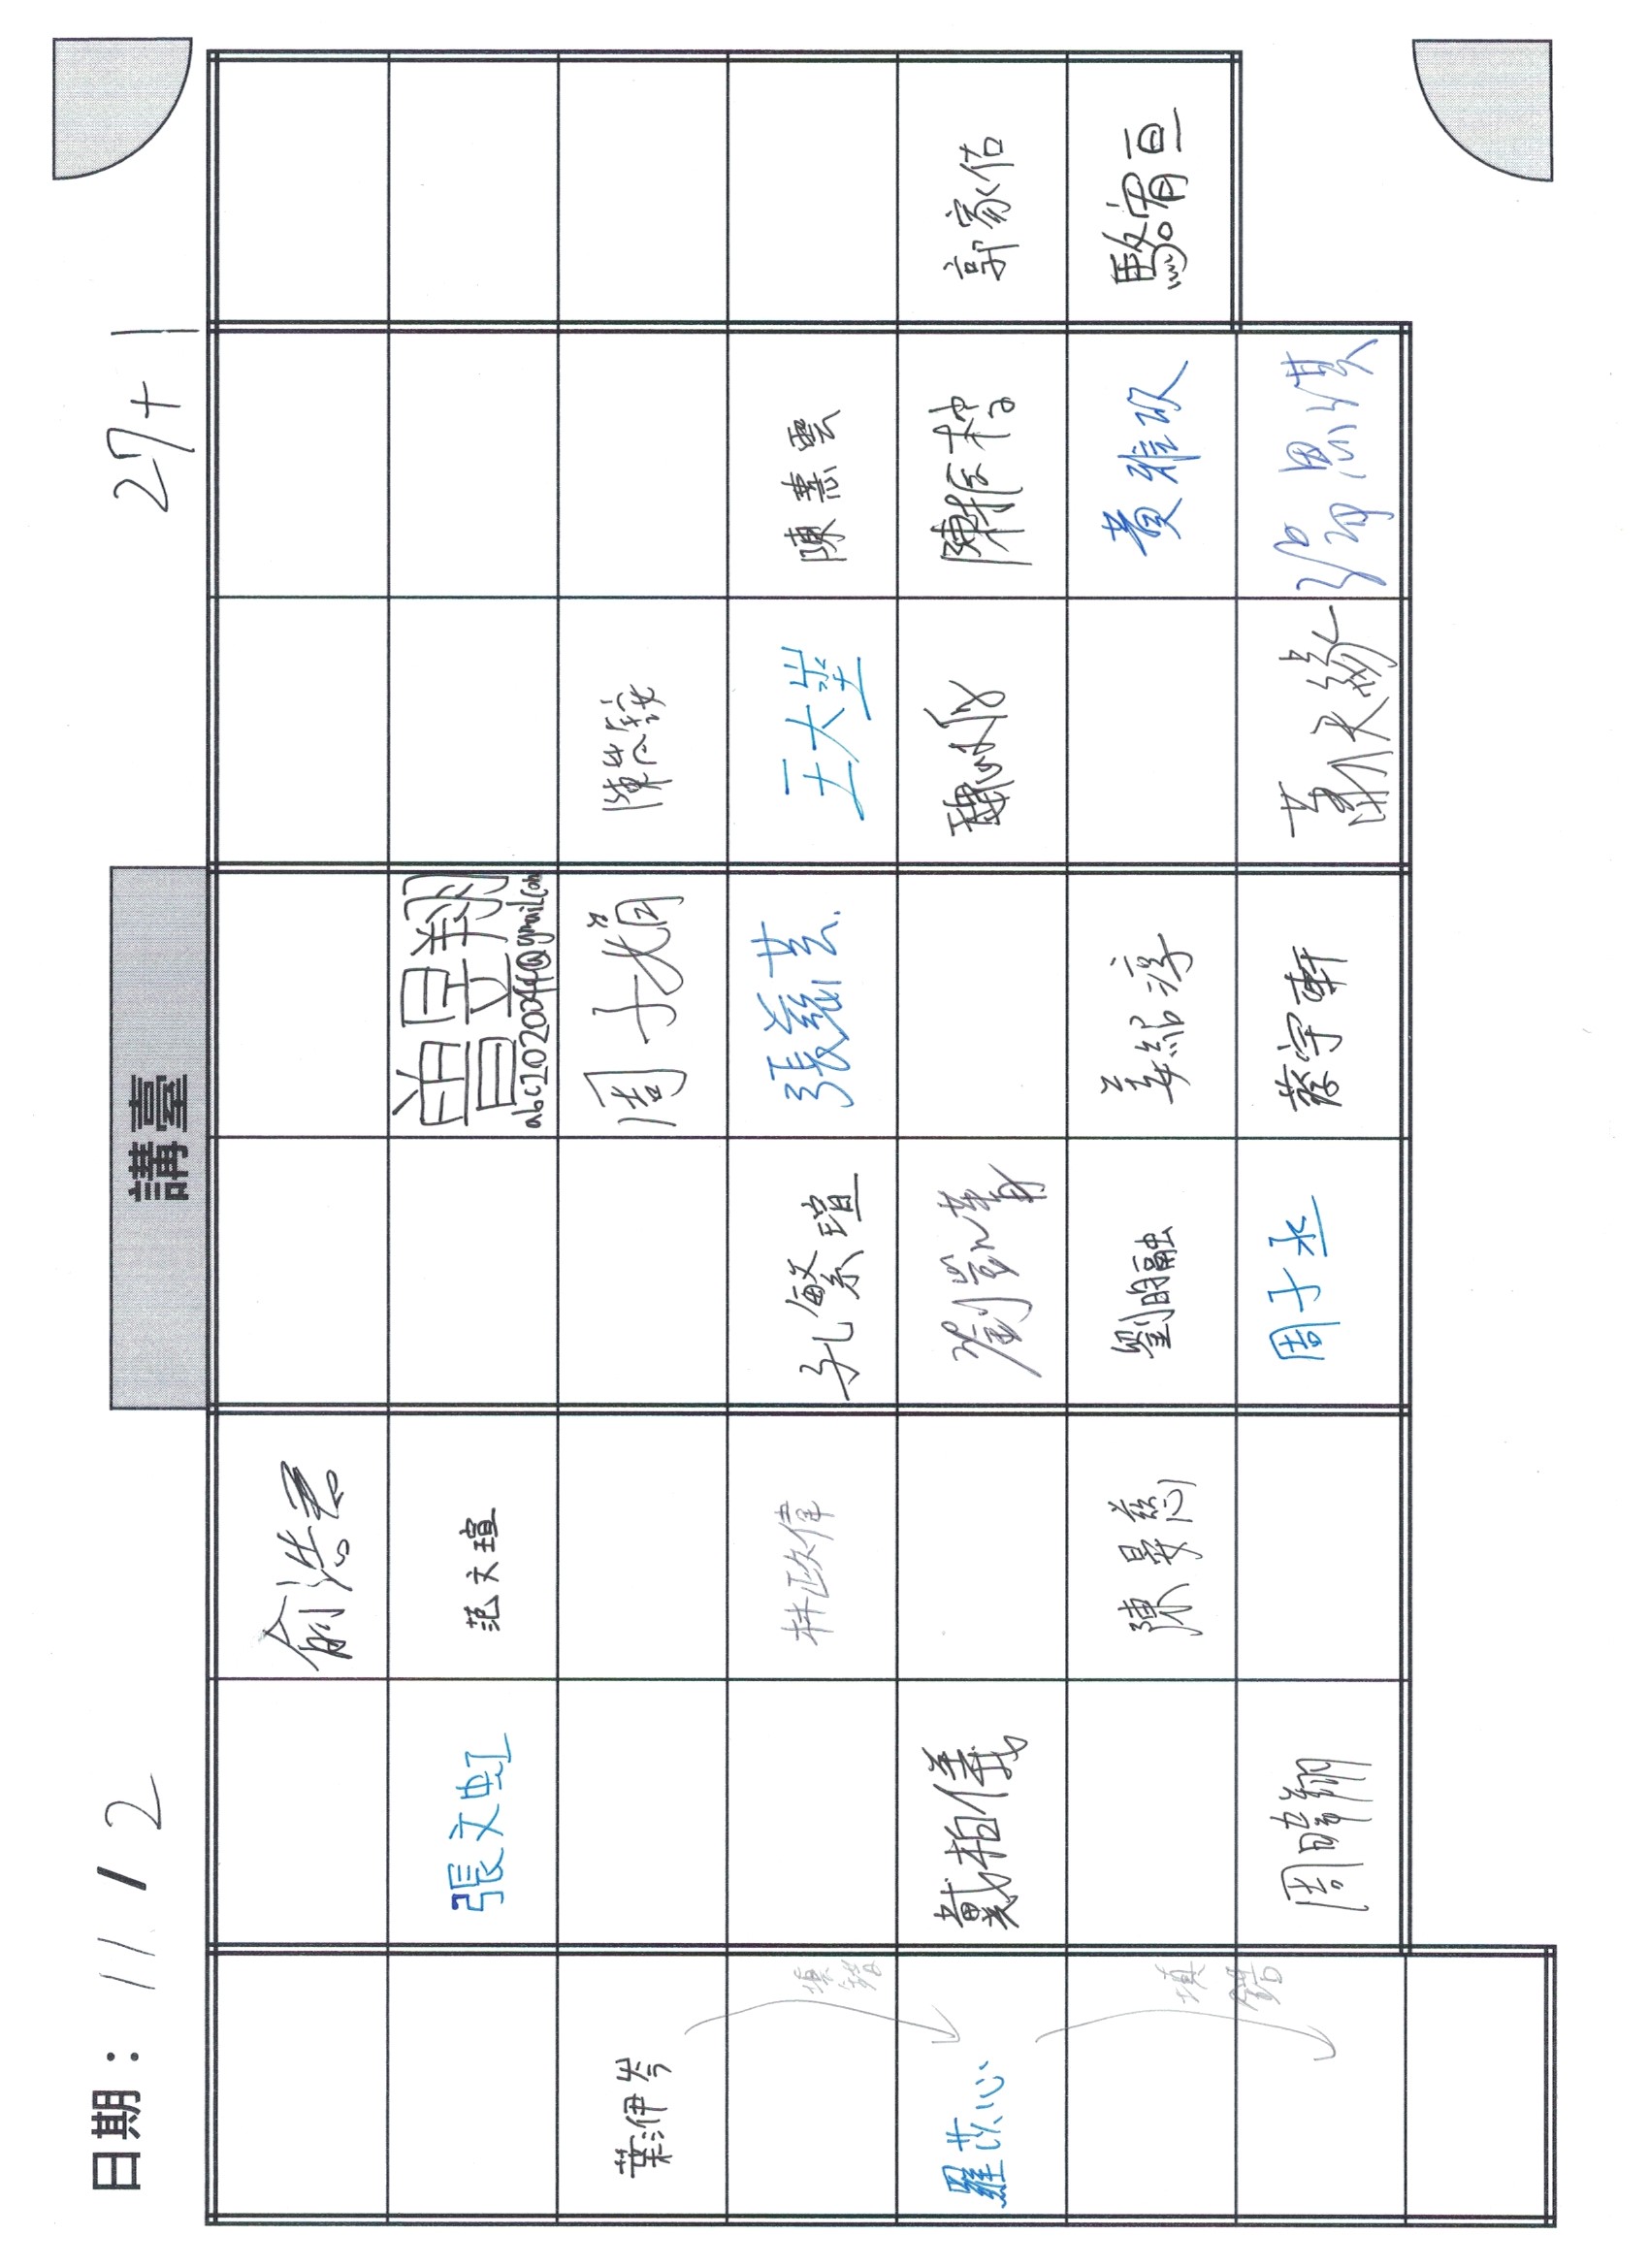 日期： 11 / 2
講臺
27+1
俞浩君
張文虹
范文瑄
曾昱翔
abc2020044@gmail.com
葉洢岑
周子娟
陳岱銨
填錯
林政偉
孔繁瑄
張慈芸
王大坐
陳蕙雲
羅苡心
戴柏儀
劉凱菁
魏
陳振
郭家佑
填錯
陳晏慈
劉昀融
姜紹淳
黃雅玫
駱宥亘
周暐翔
周于丞
蔡宇軒
蕭天緣
思淇